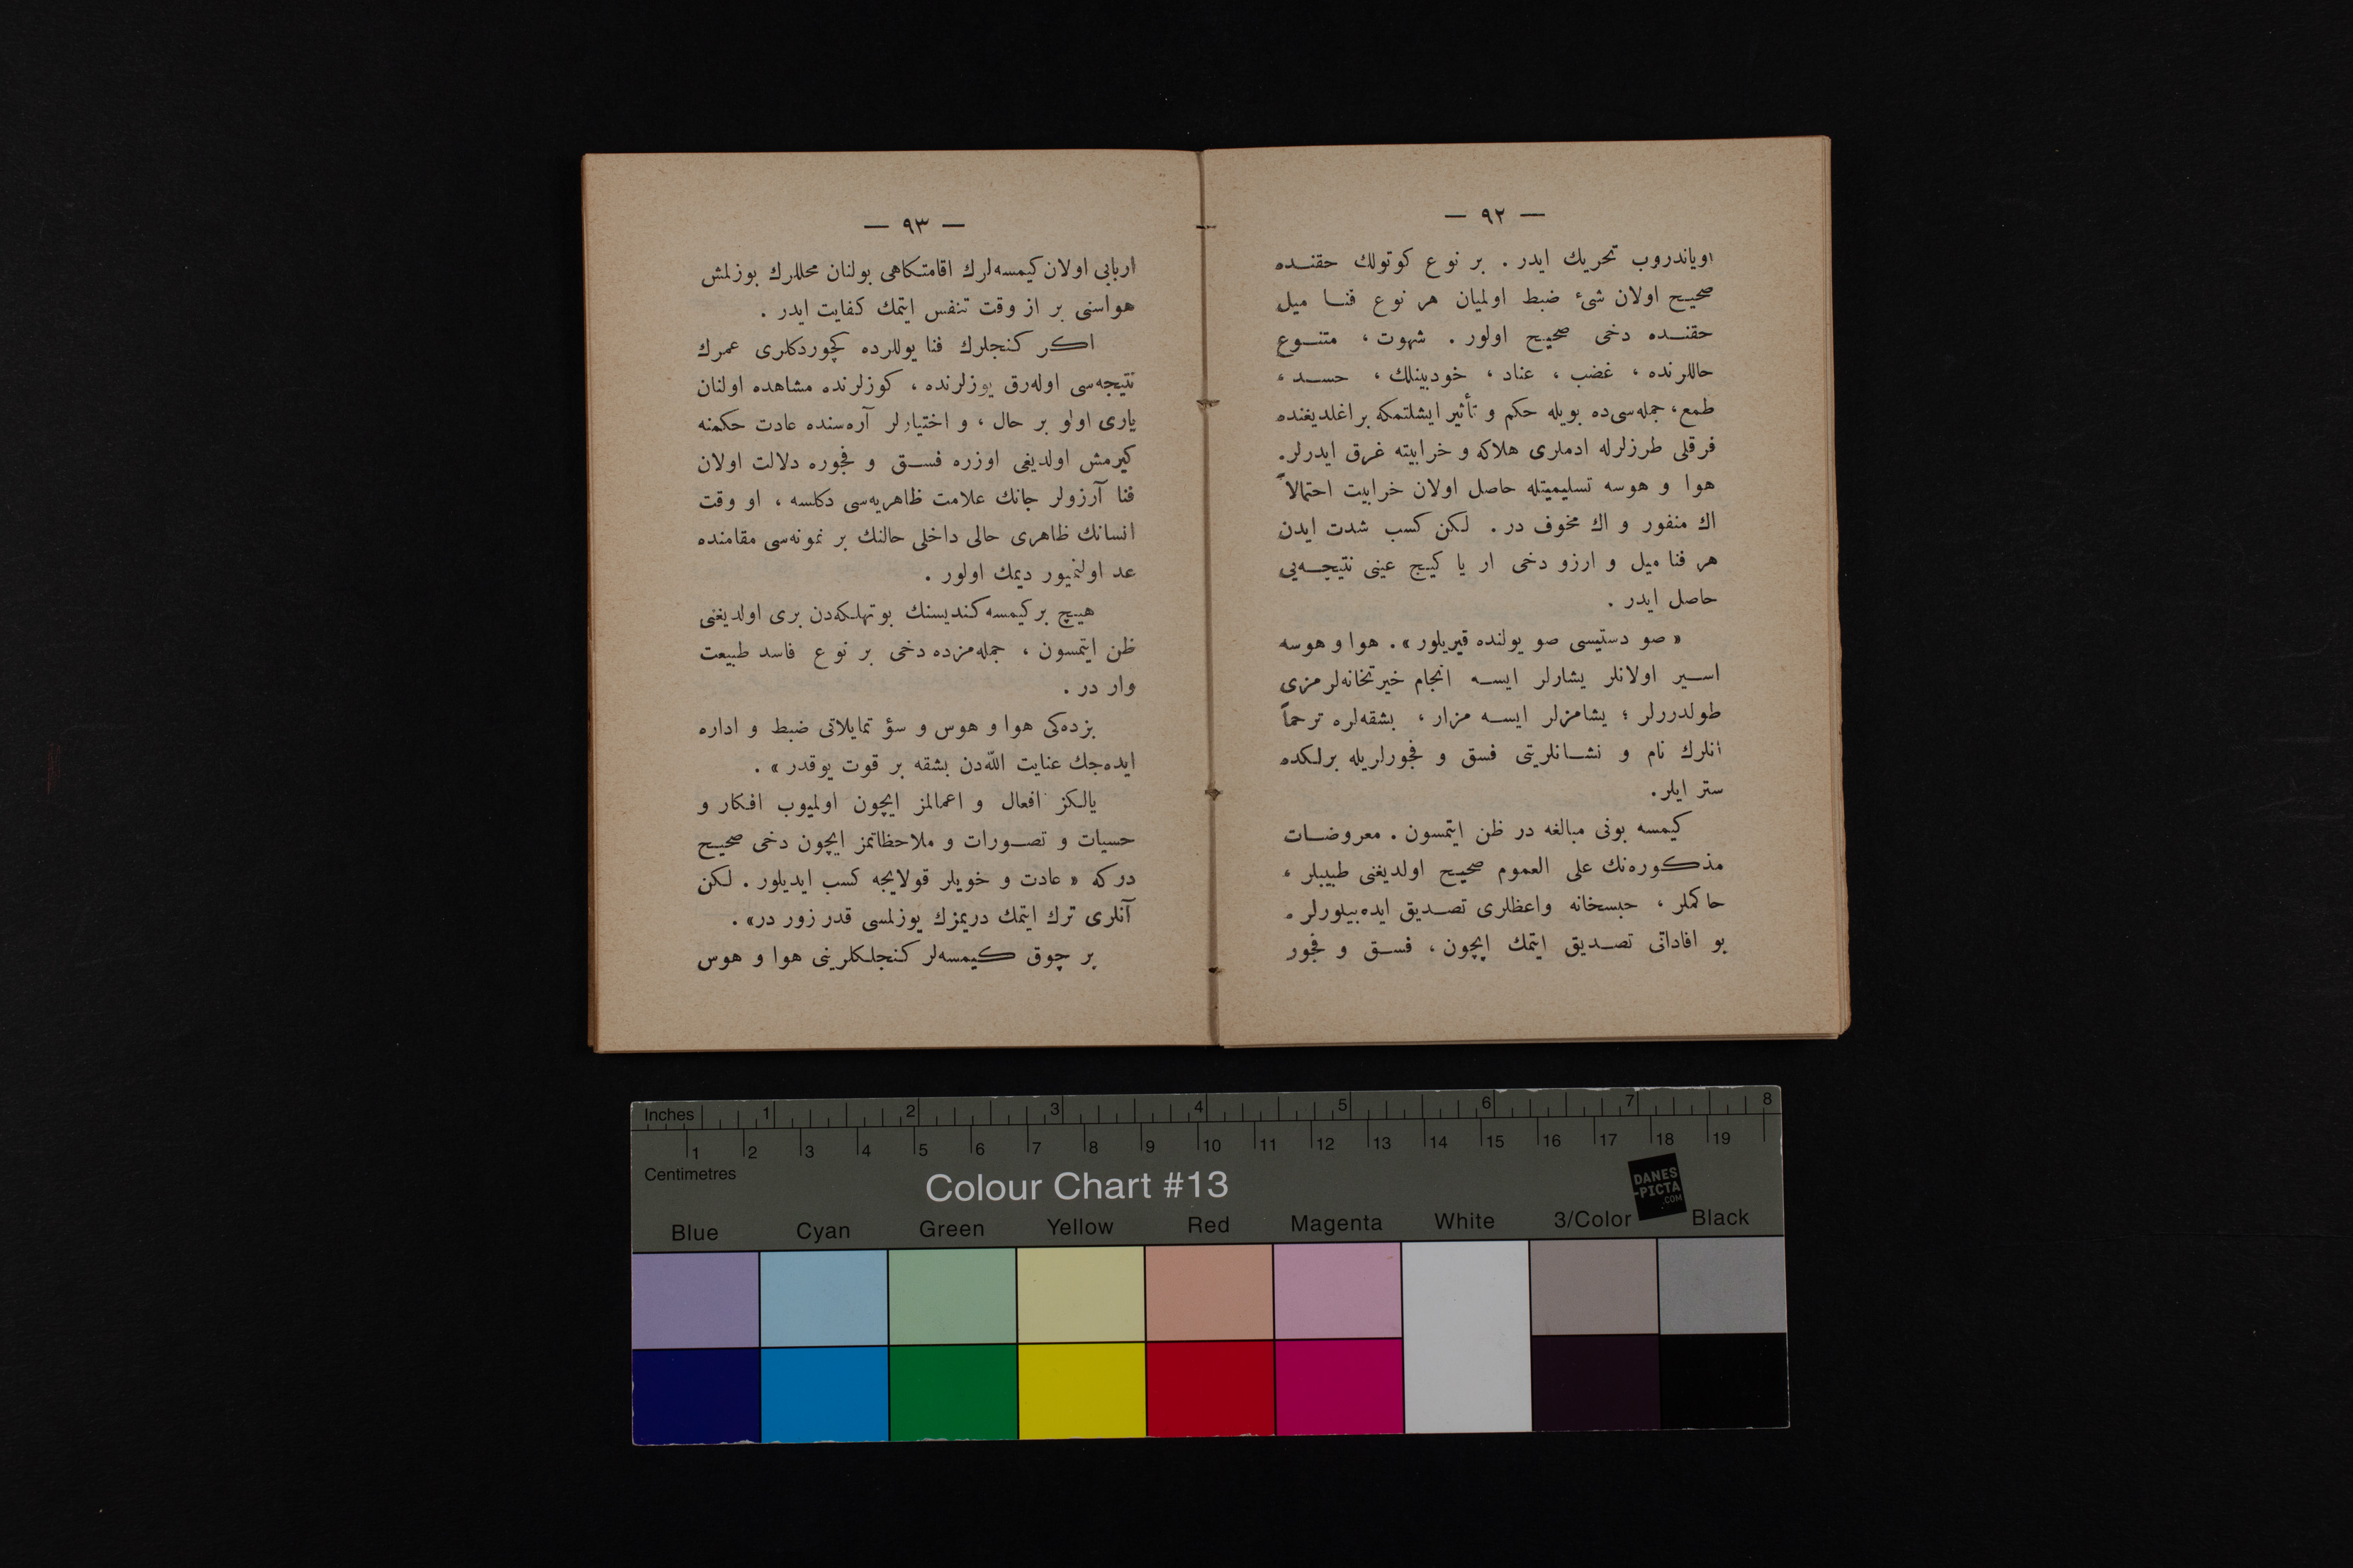 — ٩٢ —
اوياندروب تحريك ايدر . بر نوع كوتولك حقنــده
صحيـح اولان شیٔ ضبط اولميان هر نوع فنــا ميل
حقنــده دخی صحيـح اولور . شهوت ، متنــوع
حاللرنده ، غضب ، عناد ، خودبينلك ، حســد ،
طمع، جمله‌سی‌ده بويله حكم و تأثير ايشلتمكه براغلديغنده
فرقلی طرزلرله ادملری هلاكه و خرابيته غرق ايدرلر.
هوا و هوسه تسليميتله حاصل اولان خرابيت احتمالاً
اك منفور و اك مخوف در . لكن كسب شدت ايدن
هر فنا ميل و ارزو دخی ار يا كيـج عينی نتيجــه‌يی
حاصل ايدر .
« صو دستيسی صو يولنده قيريلور» . هوا و هوسه
اســير اولانلر يشارلر ايســه انجام خيرتخانه‌لرمزی
طولدررلر ؛ يشامزلر ايســه مزار ، بشقه‌لره ترحماً
انلرك نام و نشــانلريتی فسق و فجورلريله برلـكده
ستر ايلر.
كيمسه بونی مبالغه در ظن ايتمسون . معروضــات
مذكوره‌نك علی العموم صحيـح اولديغنی طبيبلر ،
حاكملر ، حبسخانه واعظلری تصــديق ايده‌بيلورلر .
بو افاداتی تصــديق ايتمك ايچون ، فســق و فجور
— ٩٣ —
اربابی اولان كيمسه‌لرك اقامتـكاهی بولنان محللرك بوزلمش
هواسنی بر از وقت تنفس ايتمك كفايت ايدر .
اكر كنجلرك فنا يوللرده كچوردكلری عمرك
نتيجه‌سی اوله‌رق يوزلرنده ، كوزلرنده مشاهده اولنان
ياری اولو بر حال ، و اختيارلر آره‌سنده عادت حكمنه
كيرمش اولديغی اوزره فســق و فجوره دلالت اولان
فنا آرزولر جانك علامت ظاهريه‌سی دكلسه ، او وقت
انسانك ظاهری حالی داخلی حالنك بر نمونه‌سی مقامنده
عد اولنميور ديمك اولور .
هيـچ بركيمسه كنديسنك بو تهلـكه‌دن بری اولديغنی
ظن ايتمسون ، جمله‌مزده دخی بر نوع فاسد طبيعت
وار در .
بزده‌كی هوا و هوس و سؤ تمايلاتی ضبط و اداره
ايده‌جك عنايت اللّه‌دن بشقه بر قوت يوقدر» .
يالـكز افعال و اعمالمز ايچون اولميوب افـكار و
حسيات و تصــورات و ملاحظاتمز ايچون دخی صحيـح
دركه « عادت و خويلر قولايجه كسب ايديلور . لـكن
آنلری ترك ايتمك دريمزك يوزلمسی قدر زور در» .
بر چوق كيمسه‌لر كنجلـكلرينی هوا و هوس
Inches 1 2 3 4 5 6 7 8
1 2 3 4 5 6 7 8 9 10 11 12 13 14 15 16 17 18 19
Centimetres
Colour Chart #13
DANES
-PICTA
.COM
Blue Cyan Green Yellow Red Magenta White 3/Color Black